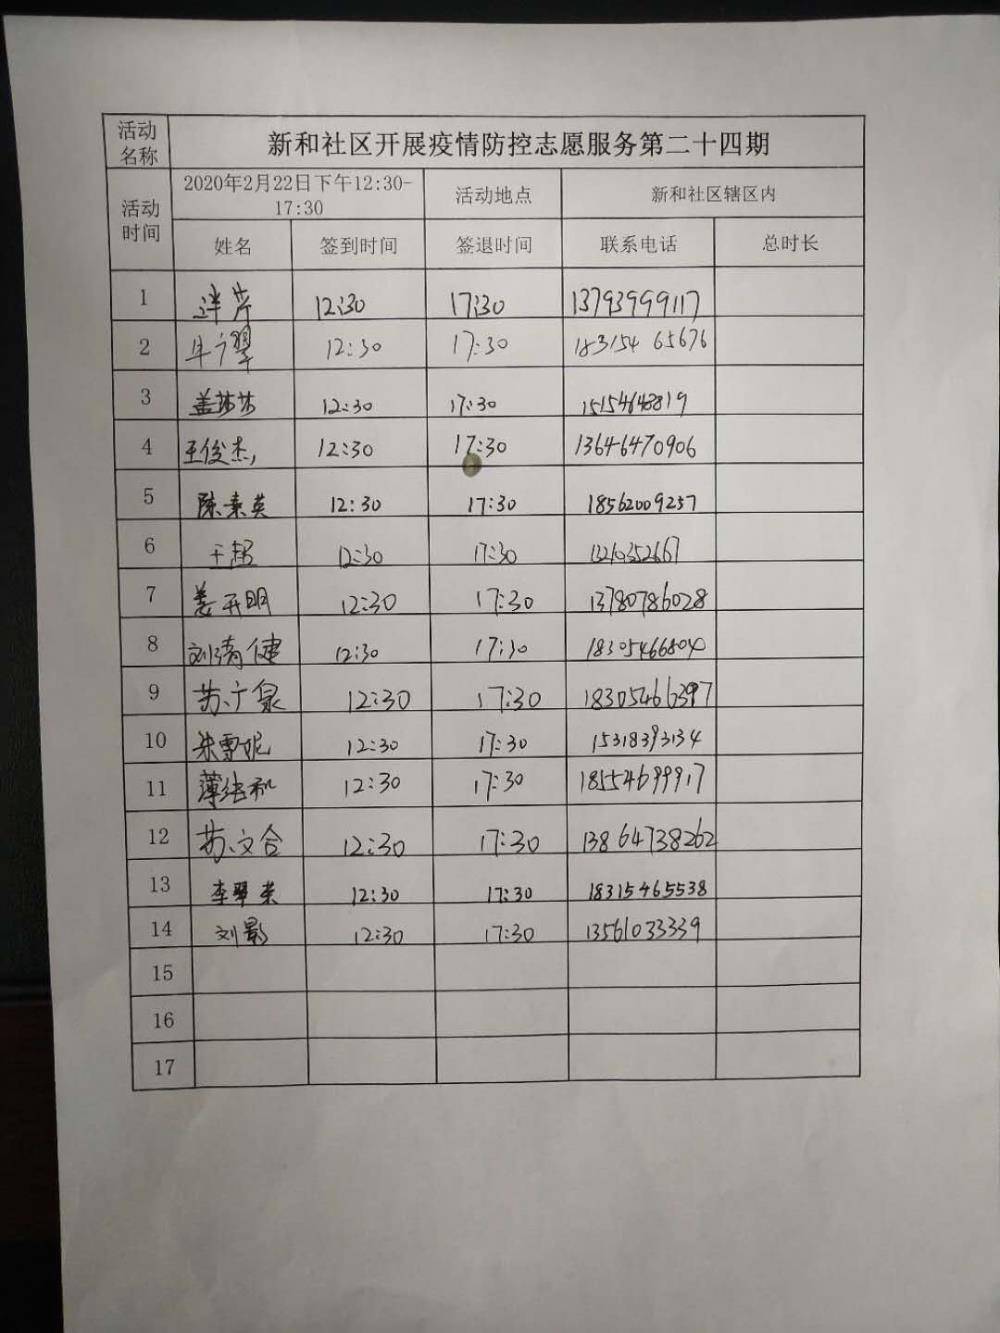 活动名称 新和社区开展疫情防控志愿服务第二十四期
活动时间 2020年2月22日下午12:30-17:30 活动地点 新和社区辖区内
姓名 签到时间 签退时间 联系电话 总时长
1 12:30 17:30 13793999117
2 12:30 17:30 183154 65676
3 盖莎莎 12:30 17:30 15154648819
4 王俊杰 12:30 17:30 13646470906
5 陈素英 12:30 17:30 18562009237
6 王超 12:30 17:30
7 姜开明 12:30 17:30 13780786028
8 12:30 17:30
9 苏广泉 12:30 17:30 18305466397
10 朱雪妮 12:30 17:30 15318393134
11 薄纯和 12:30 17:30 18554699917
12 苏文合 12:30 17:30 13864738262
13 李翠荣 12:30 17:30 18315465538
14 刘影 12:30 17:30 13561033339
15
16
17